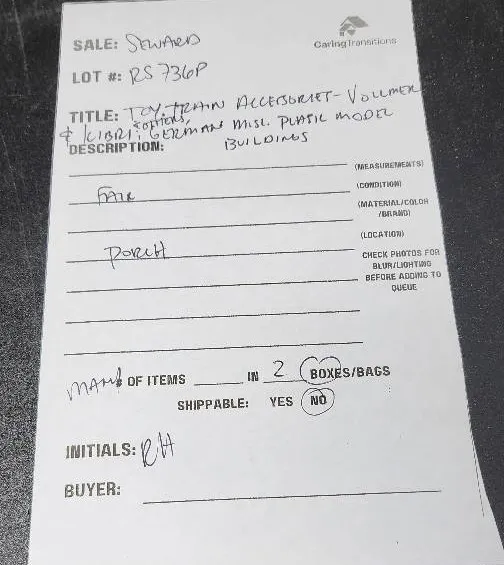 SALE: SEWARD
CaringTransitions
LOT #: RS736P
TITLE: TOY TRAIN ACCESSORIES - VOLLMER
& KIBRI & OTHERS, GERMAN MISC. PLASTIC MODEL
BUILDINGS
DESCRIPTION:
(MEASUREMENTS)
FAIR
(CONDITION)
(MATERIAL/COLOR
/BRAND)
(LOCATION)
PORCH
CHECK PHOTOS FOR
BLUR/LIGHTING
BEFORE ADDING TO
QUEUE
MANY # OF ITEMS IN 2 BOXES/BAGS
SHIPPABLE: YES NO
INITIALS: RH
BUYER: